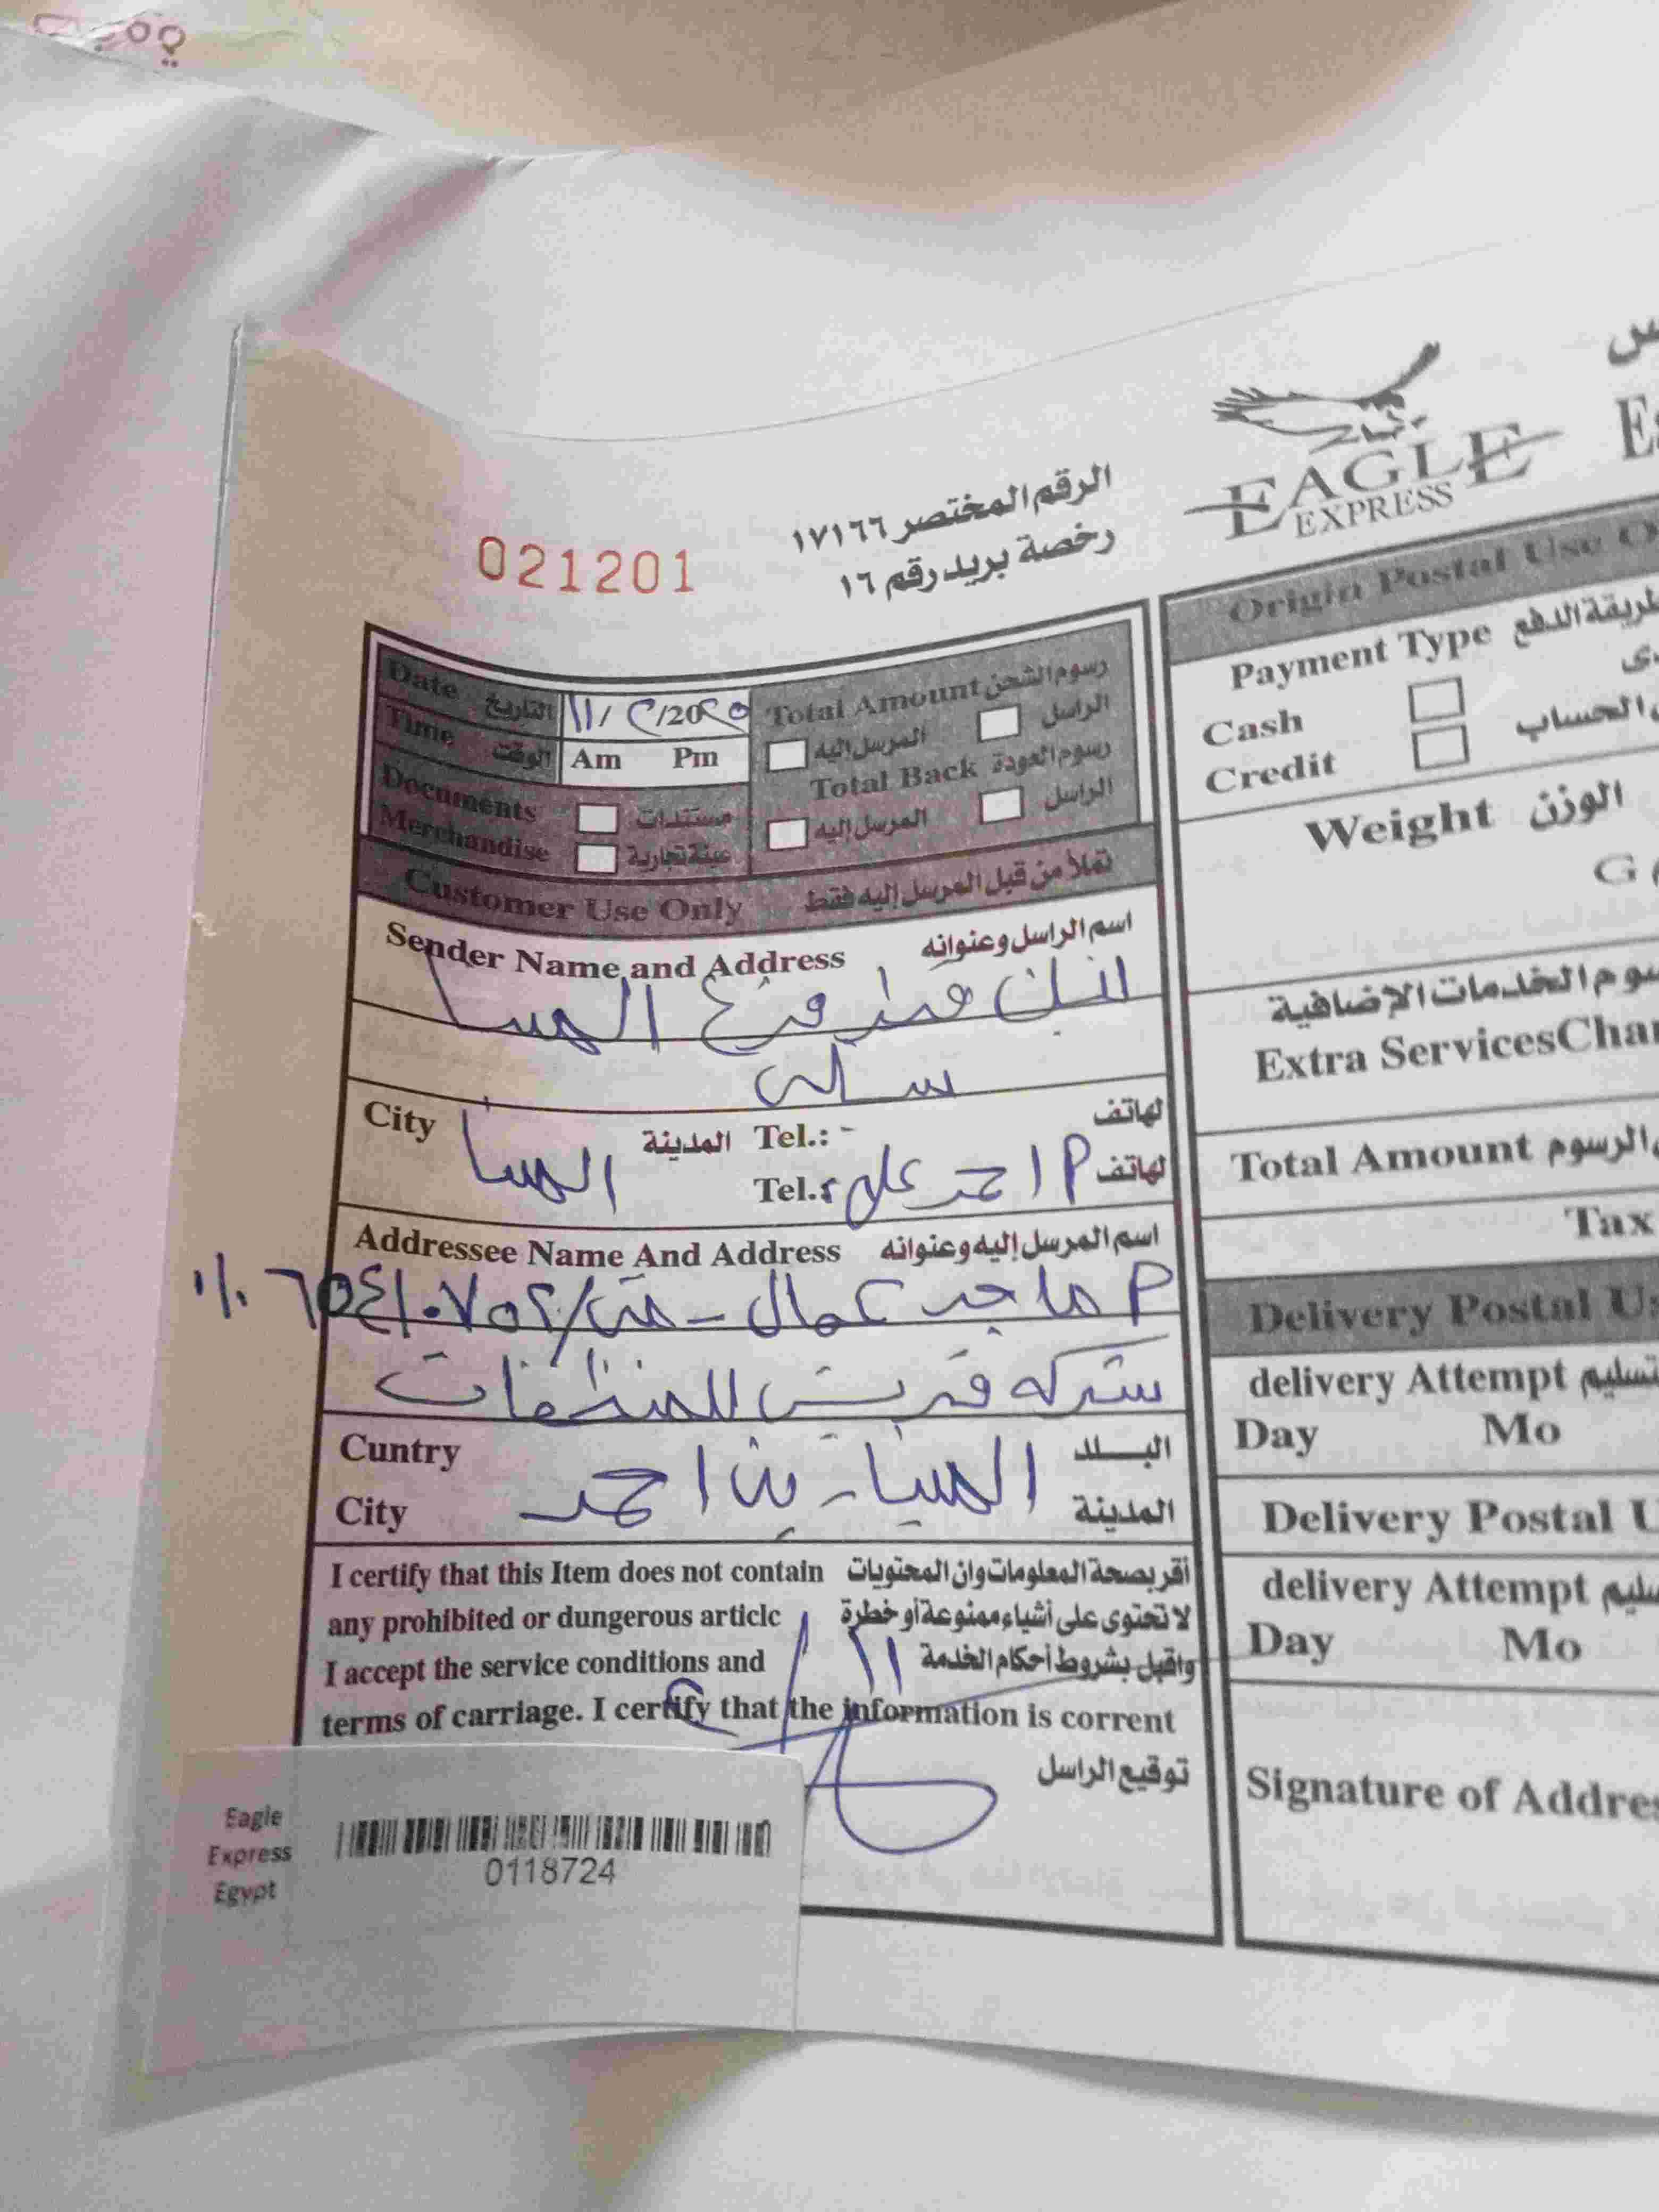 021201
الرقم المختصر ١٧١٦٦
رخصة بريد رقم ١٦
EAGLE
EXPRESS
Date التاريخ ١١/ ٢/20٢٥
Time الوقت Am Pm
Documents مستندات
Merchandise عينة تجارية
Total Amount رسوم الشحن
المرسل إليه الراسل
Total Back رسوم العودة
المرسل إليه الراسل
Customer Use Only تملأ من قبل المرسل إليه فقط
Sender Name and Address اسم الراسل وعنوانه
فرع
City المدينة Tel.: لهاتف
Tel.: لهاتف
م احمد علي
Addressee Name And Address اسم المرسل إليه وعنوانه
م ماجد
شركه للمنظفات
Cuntry البلد
City المدينة
احمد
I certify that this Item does not contain أقر بصحة المعلومات وان المحتويات
any prohibited or dungerous article لا تحتوى على أشياء ممنوعة أو خطرة
I accept the service conditions and واقبل بشروط أحكام الخدمة
terms of carriage. I certify that the information is corrent
توقيع الراسل
Eagle
Express
Egypt
0118724
Origin Postal Use
Payment Type طريقة الدفع
Cash
Credit الحساب
Weight الوزن
G
الخدمات الإضافية
Extra Services
Total Amount الرسوم
Tax
Delivery Postal
delivery Attempt تسليم
Day Mo
Delivery Postal
delivery Attempt
Day Mo
Signature of